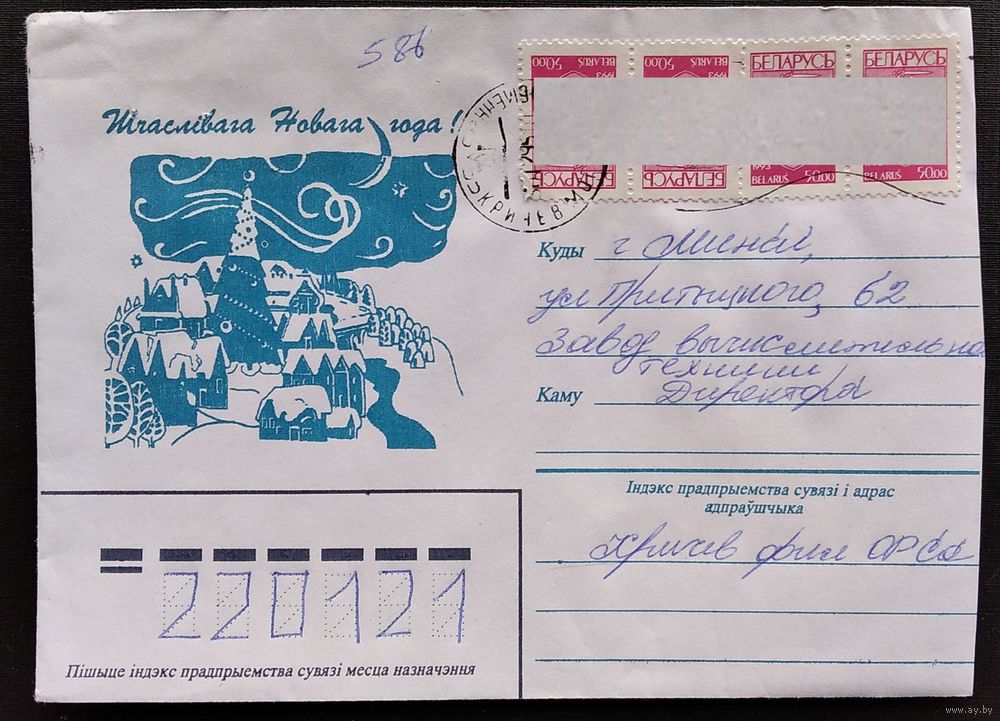 586
50.00 50.00 БЕЛАРУСЬ БЕЛАРУСЬ
BELARUS BELARUS
1993 1993
Шчаслівага Новага года!
КРИЧЕВ
1993
БЕЛАРУСЬ БЕЛАРУСЬ BELARUS 50.00 BELARUS 50.00
Куды г Минск,
ул Притыцкого, 62
Завод вычислительно
техники
Каму Директора
Індэкс прадпрыемства сувязі і адрас
адпраўшчыка
Кричев фил ОРСа
220121
Пішыце індэкс прадпрыемства сувязі месца назначэння
www.ay.by